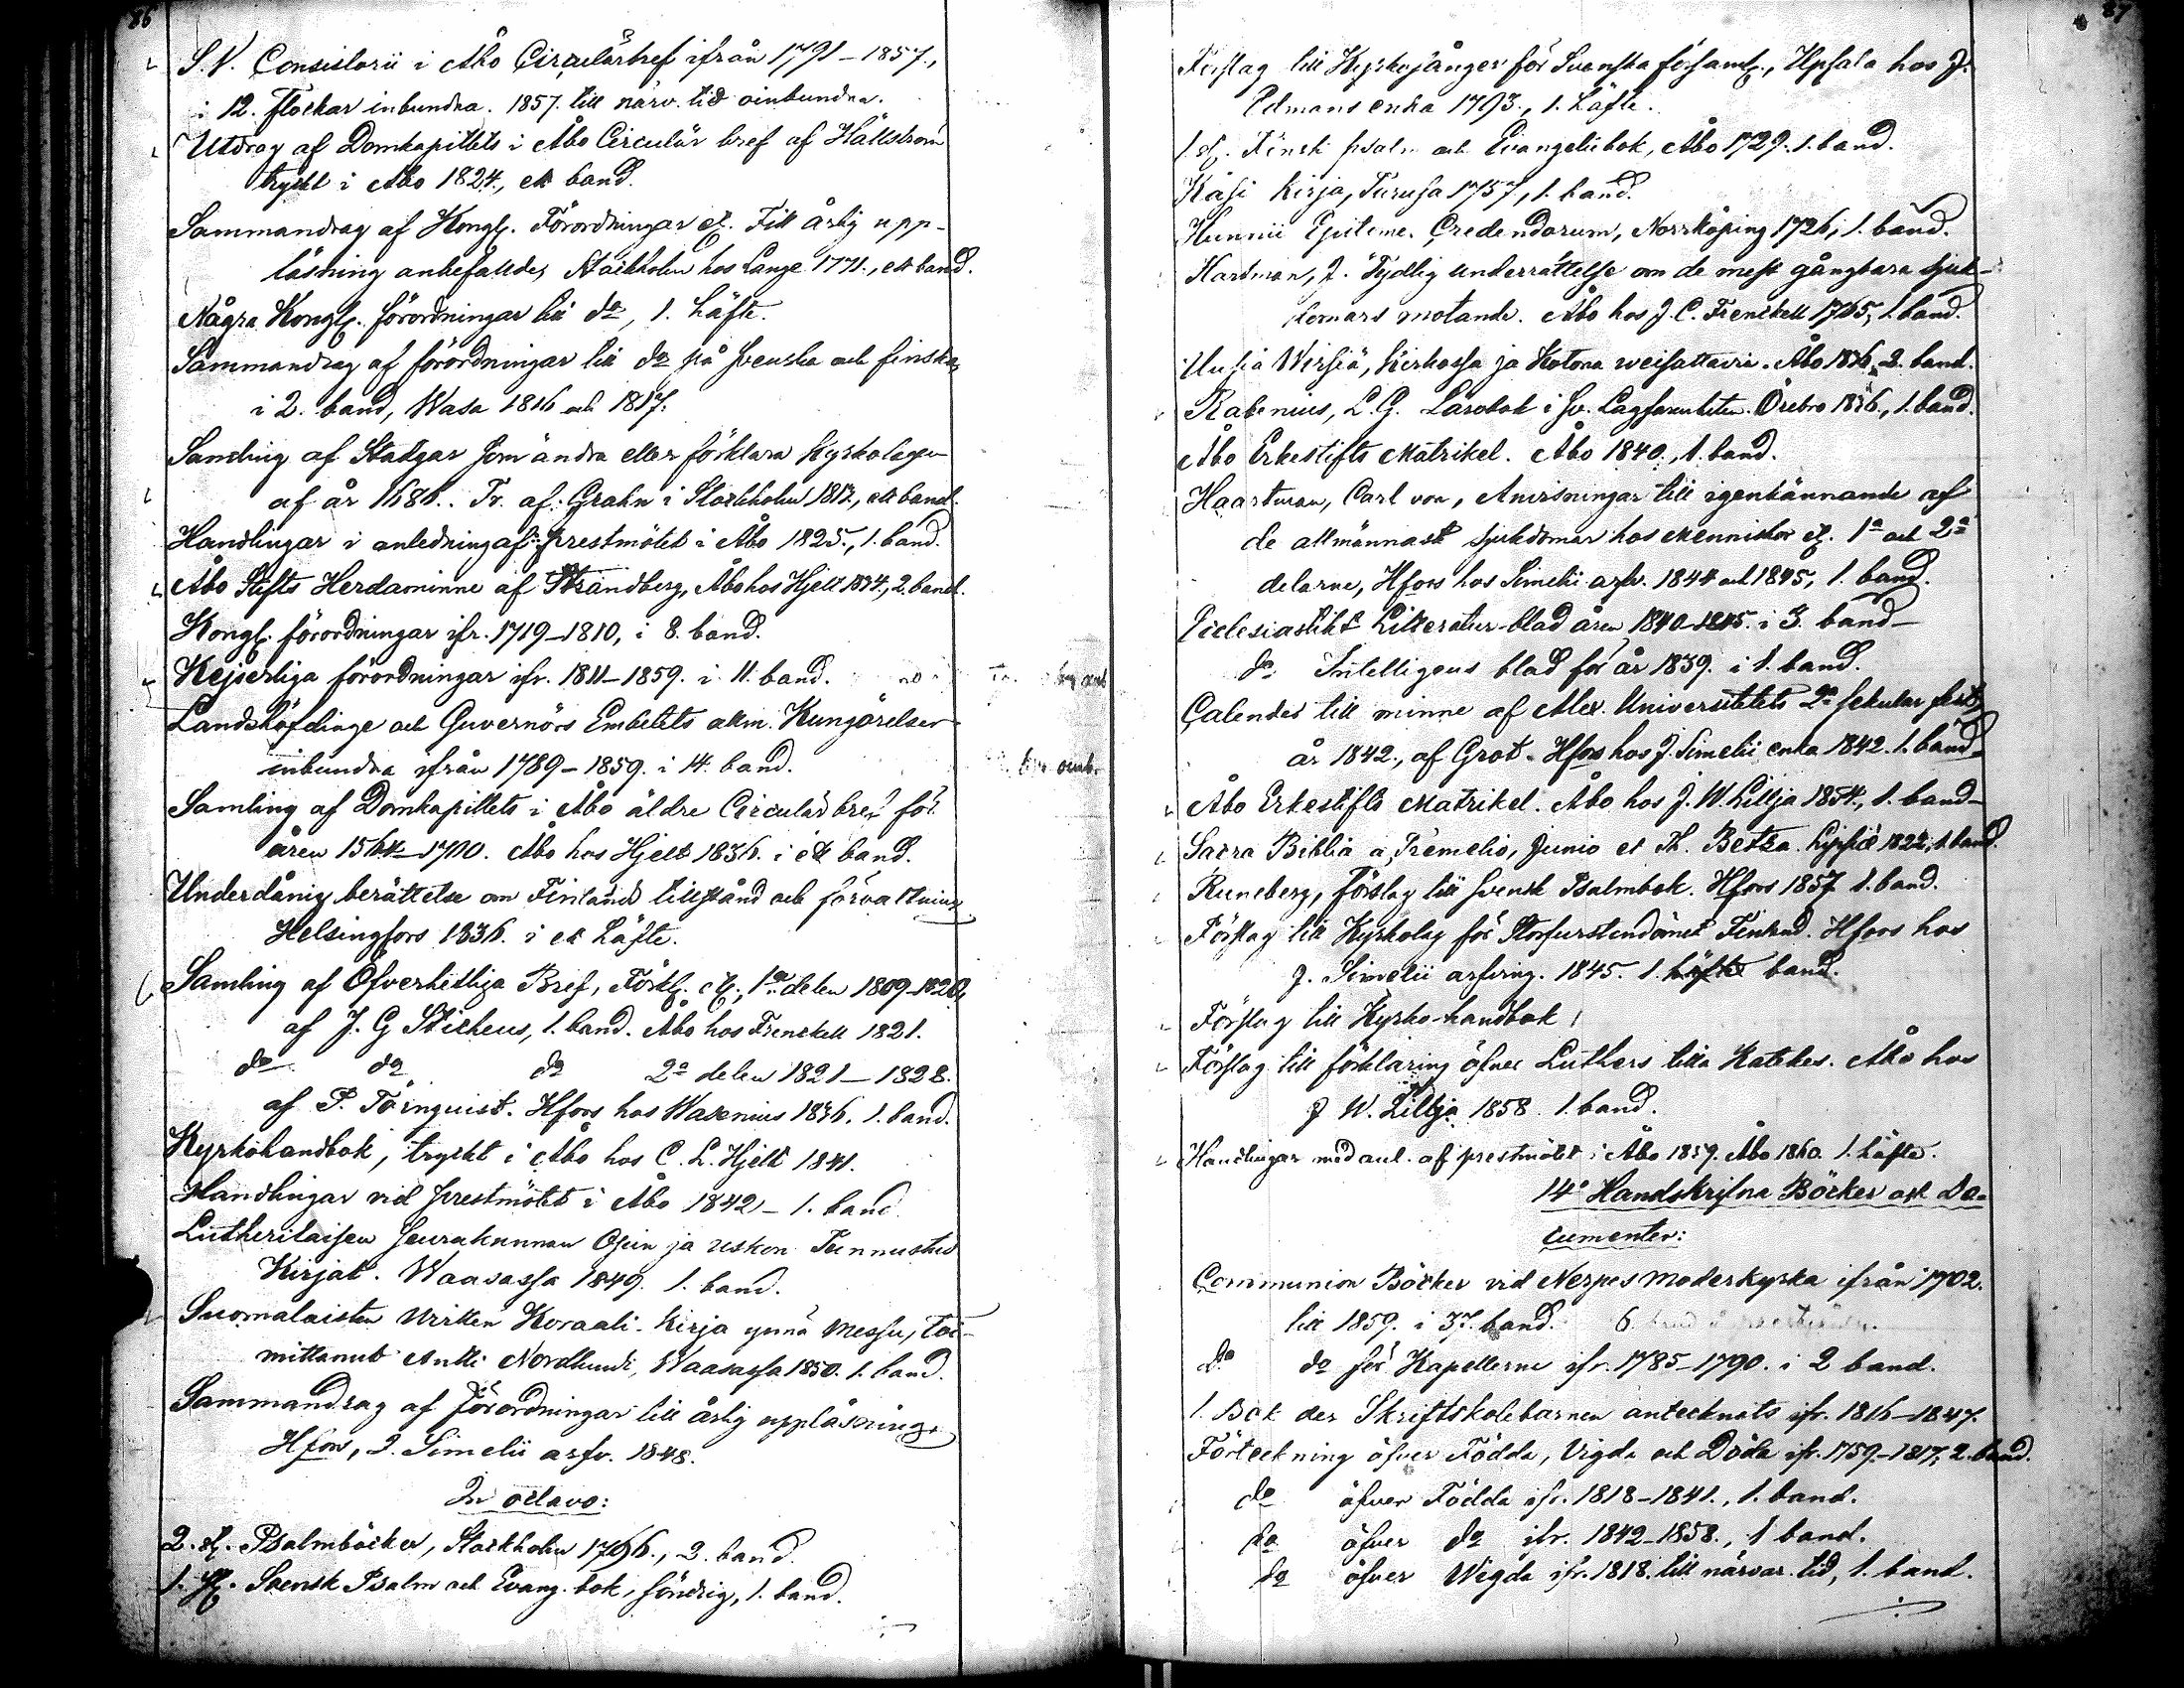 86
S. V. Consistorii i Åbo Circulärbref ifrån 1791–1857.,
i 12. flockar inbundna. 1857. till närv. tid oinbundna.
Utdrag af Domkapitlets i Åbo Circulär bref af Hällström
tryckt i Åbo 1824., ett band.
Sammandrag af Kongl. Förordningar etc. Till årlig upp-
läsning anbefallde, Stockholm hos Lange 1771., ett band.
Några Kongl. förordningar till do, 1. häfte.
Sammandrag af förordningar till do på Svenska och finska,
i 2. band, Wasa 1816 och 1817.
Samling af Stadgar som ändra eller förklara Kyrkolagen
af år 1686.. Tr. af Grahn i Stockholm 1813., ett band.
Handlingar i anledning af prestmötet i Åbo 1825., 1. band.
Åbo Stifts Herdaminne af Strandberg, Åbo hos Hjelt 1834., 2. band.
Kongl. förordningar ifr. 1719–1810, i 8. band.
Kejserliga förordningar ifr. 1811–1859. i 11. band.
Landshöfdinge och Guvernörs Embetets allm. Kungörelser
inbundna ifrån 1789–1859. i 14. band.
Samling af Domkapitlets i Åbo äldre Circulärbref för
åren 1564–1700. Åbo hos Hjelt 1836. i ett band.
Underdånig berättelse om Finlands tillstånd och förvaltning
Helsingfors 1836. i ett häfte.
Samling af Öfverhetliga Bref, Förkl. etc., 1a delen 1809–1820,
af J. G Sticheus, 1. band. Åbo hos Frenckell 1821.
do do do 2a delen 1821–1828.
af P. Törnquist. Hfors hos Wasenius 1836. 1. band.
Kyrkohandbok, tryckt i Åbo hos C. L. Hjelt 1841.
Handlingar vid prestmötet i Åbo 1842 – 1. band
Lutherilaisen Seurakunnan Opin ja uskon Tunnustus
Kirjat. Waasassa 1849. 1. band.
Suomalaisten Wirtten Koraali-Kirja ynnä Messu, toi-
mittanut Antti Nordlund, Waasassa 1850. 1. band.
Sammandrag af Förordningar till årlig uppläsning,
Hfors, J. Simelii arfv. 1848.
In octavo:
2. st. Psalmböcker, Stockholm 1766., 2. band.
1. st. Svensk Psalm och Evang. bok, söndrig, 1. band.
87
Förslag till Kyrkosånger för Svenska församl., Upsala hos J.
Edmans enka 1793., 1. Häfte.
1. st. Finsk psalm och Evangeliibok, Åbo 1729. 1. band.
Käsi Kirja, Turusa 1757, 1. band.
Hunnii Epitome Credendorum, Norrköping 1726, 1. band.
Hartman, J. Tydlig underrättelse om de mest gångbara sjuk-
domars motande. Åbo hos J. C. Frenckell 1765, 1. band.
Uusia Wirsiä, Kirkossa ja Kotona weisattavia. Åbo 1836, 2. band.
Rabenius, L. G. Lärobok i Sv. Lagfarenheten. Örebro 1836., 1. band.
Åbo Erkestifts Matrikel. Åbo 1840., 1. band.
Haartman, Carl von, Anvisningar till igenkännande af
de allmännast sjukdomar hos Menniskor etc. 1a och 2a
delarne, Hfors hos Simelii arfv. 1844 och 1845, 1. band.
Ecclesiastikt Litteratur-blad åren 1840–1845. i 3. band –
do Intelligens blad för år 1839. i 1. band.
Calender till minne af Alex. Universitetets 2a sekular fest
år 1842., af Grot. Hfors hos J. Simelii enka 1842. 1. band.
Åbo Erkestifts Matrikel. Åbo hos J. W. Lillja 1854., 1. band –
Sacra Biblia a Tremelio, Junio et Th. Betza. Lipsiæ 1822, 1. band.
Runeberg, förslag till Svensk Psalmbok. Hfors 1857. 1. band.
Förslag till Kyrkolag för Storfurstendömet Finland. Hfors hos
J. Simelii arfving. 1845. 1. häfte band.
Förslag till Kyrko-handbok
Förslag till förklaring öfver Luthers lilla Katekes. Åbo hos
J W. Lillja 1858. 1. band.
Handlingar med anl. af prestmötet i Åbo 1859. Åbo 1860. 1. häfte.
14o Handskrifna Böcker och Do-
cumenter:
Communion Böcker vid Nerpes Moderkyrka ifrån 1702.
till 1859. i 37. band. 6
do do för Kapellerne ifr. 1785–1790. i 2 band.
1. Bok der Skriftskolebarnen antecknats ifr. 1816–1847.
Förteckning öfver Födda, Vigda och Döda ifr. 1759.–1817, 2. band.
do öfver Födda ifr. 1818–1841., 1. band.
do öfver do ifr. 1842–1858., 1 band.
do öfver Wigda ifr. 1818. till närvar. tid, 1. band.